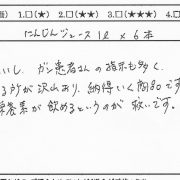 1.□(★) 2.□(★★) 3.□(★★★)
にんじんジュース 1ℓ × 6本
いし、ガン患者さんの指示も多く、
る所が沢山あり、納得いく商品です
栄養素が飲めるというのが救いです。